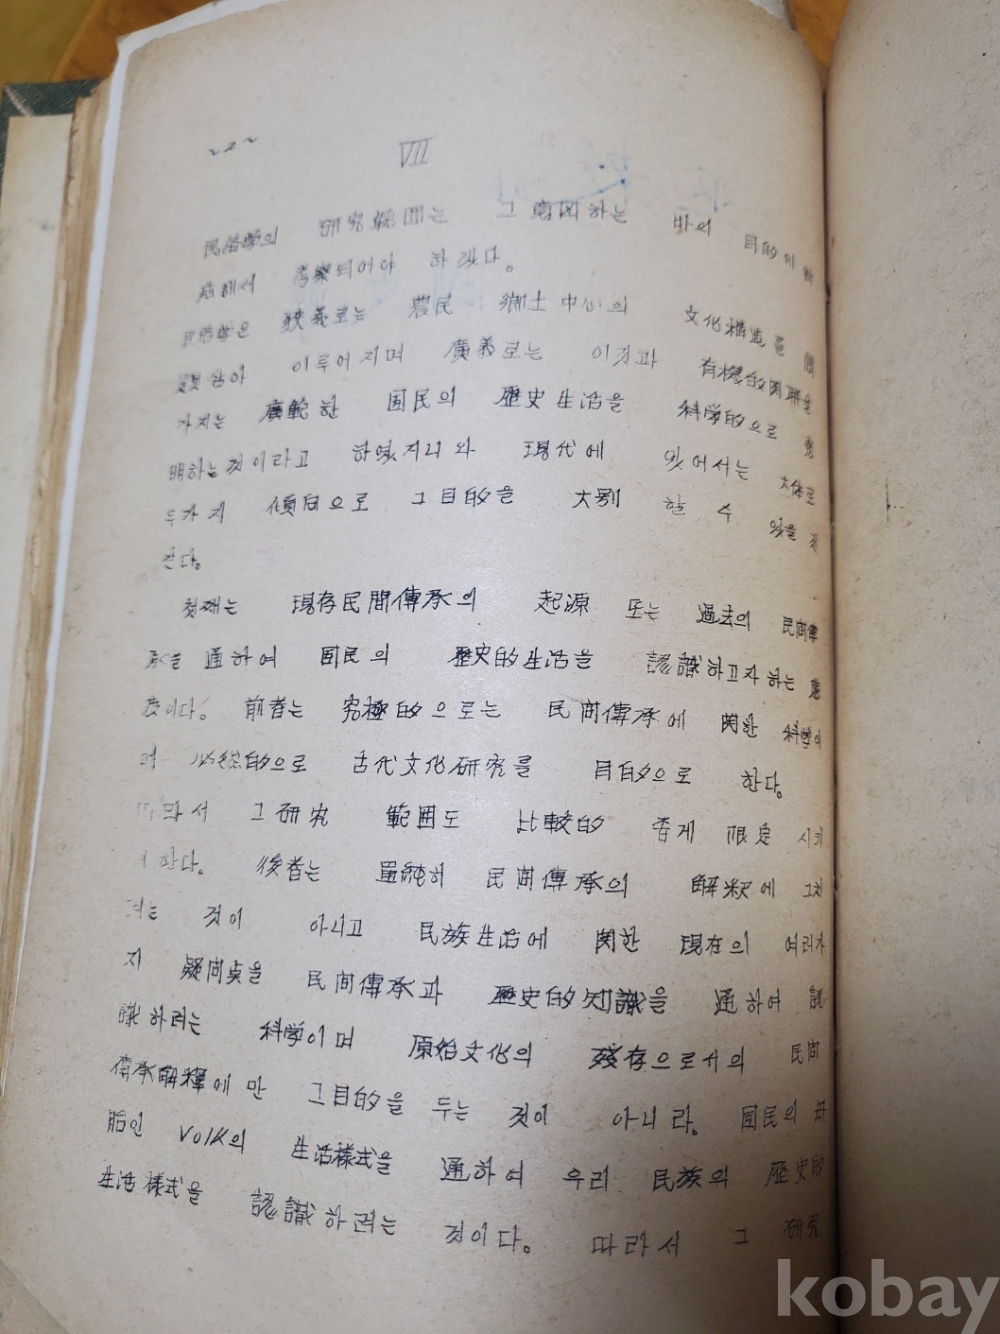 VII
民俗學의 研究範囲는 그 意図하는 바의 目的에
해서 考察되어야 하겠다。
民俗學은 狹義로는 農民 鄕土中心의 文化構造를
이루어지며 廣義로는 이것과 有機的関聯을
가지는 廣範한 国民의 歷史生活을 科学的으로 究
明하는것이라고 하였지마와 現代에 있어서는 大体로
두가지 傾向으로 그目的을 大別 할 수 있을
한다。
첫째는 現存民間傳承의 起源 또는 過去의 民间傳
承을 通하여 国民의 歷史的生活을 認識하고자하는 態
度이다。前者는 究極的으로는 民间傳承에 関한 科学이
며 必然的으로 古代文化研究를 目的으로 한다。
따라서 그研究 範囲도 比較的 좁게 限定 시키
한다。後者는 單純히 民间傳承의 解釈에 그치
려는 것이 아니고 民族生活에 関한 現在의 여러가
지 疑问点을 民间傳承과 歷史的知識을 通하여 認
識하려는 科学이며 原始文化의 殘存으로서의 民间
傳承解釋에만 그目的을 두는 것이 아니라。国民의 母
胎인 Volk의 生活樣式을 通하여 우리 民族의 歷史的
生活樣式을 認識하려는 것이다。따라서 그 研究
kobay